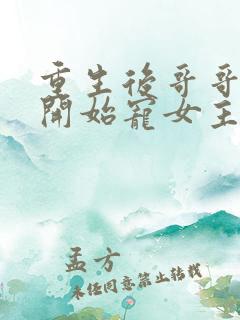 重生後哥哥
開始寵女主
孟方
未經同意禁止轉載